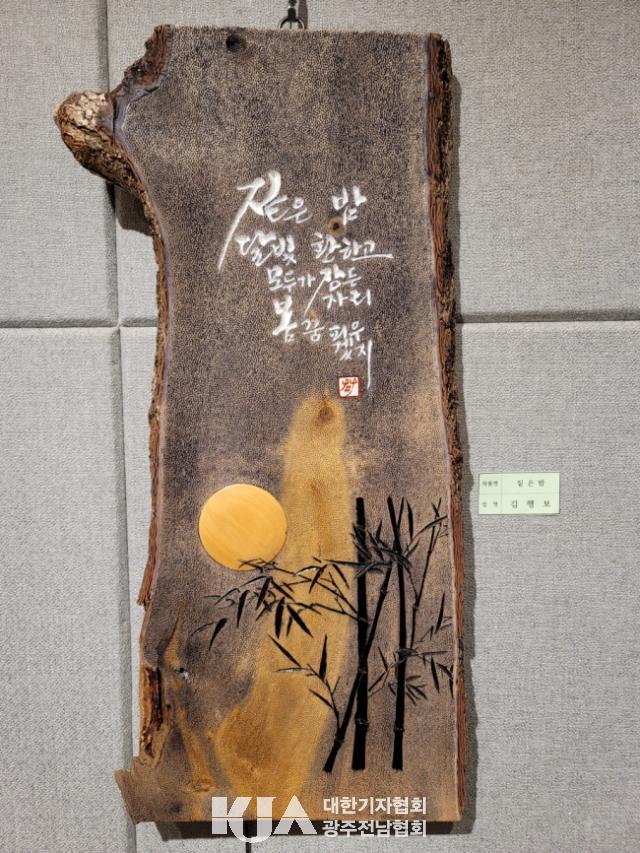 짙은 밤
달빛 환하고
모두가 잠든
자리
봄 꿈 피우
지
작품명 짙은밤
성명 김행보
KJA 대한기자협회
광주전남협회